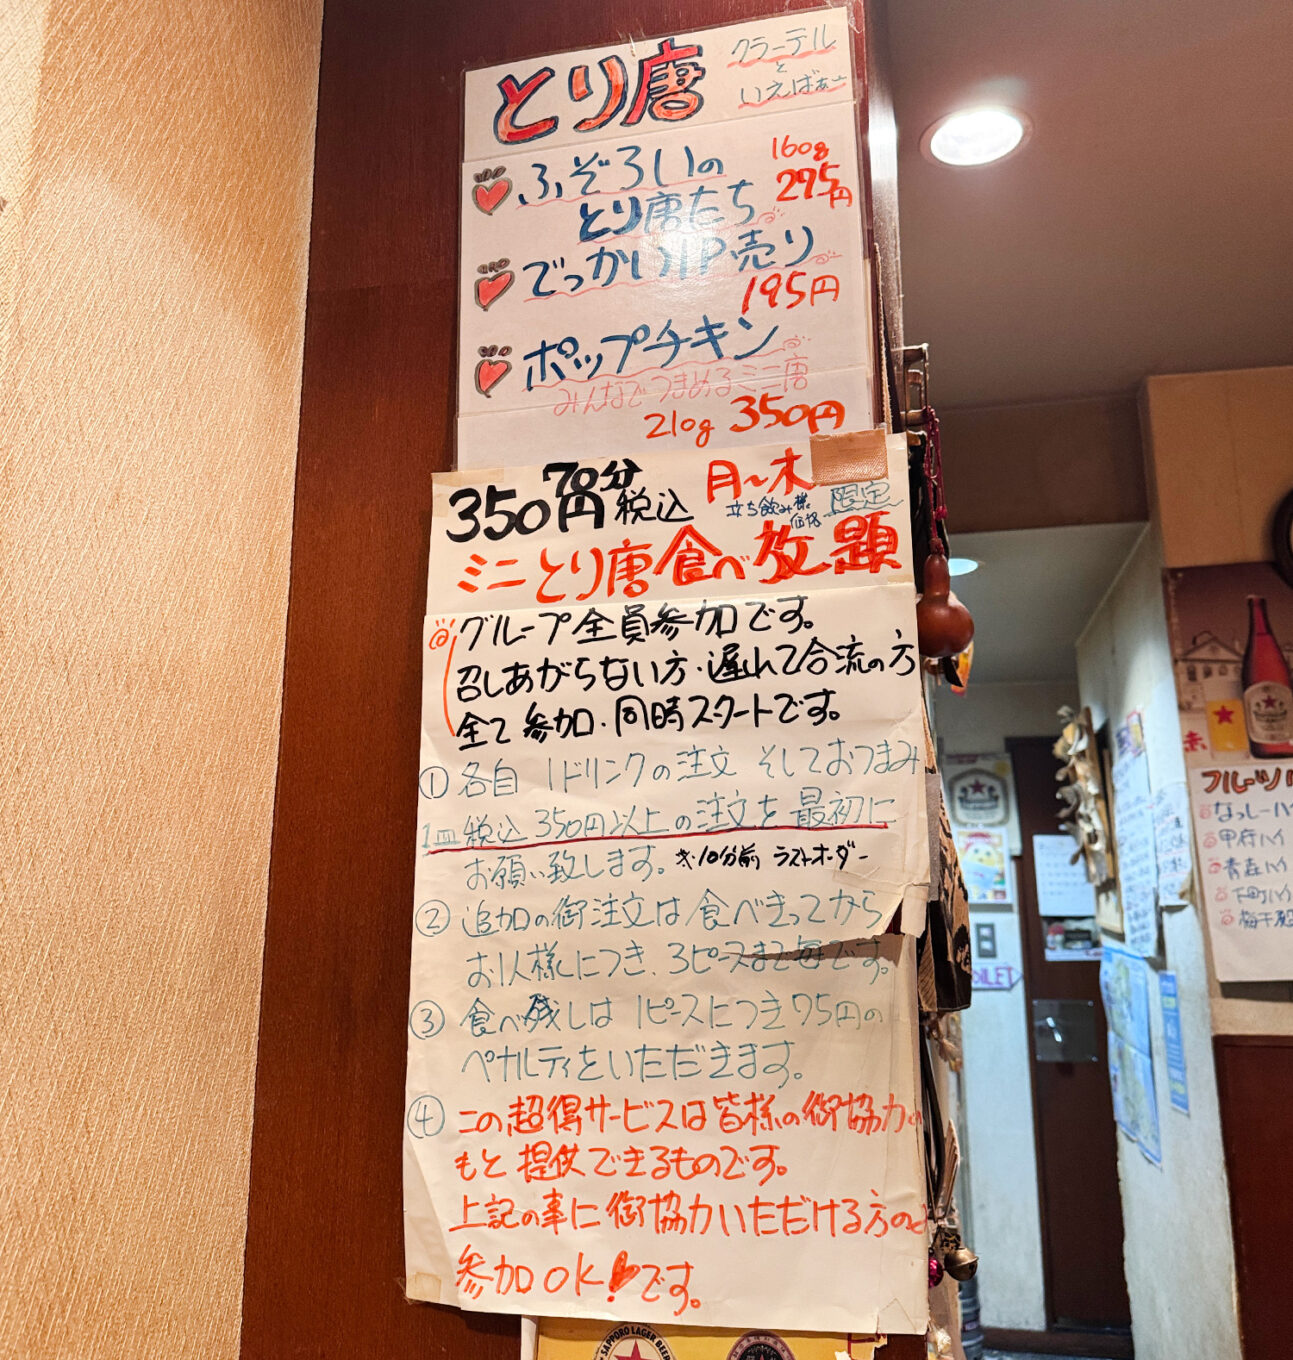 とり唐
クラーテル
と
いえばぁー
ふぞろいの
とり唐たち
160g
295円
でっかい1P売り
195円
ポップチキン
みんなでつまめるミニ唐
210g 350円
70分
350円税込
月〜木
立ち飲み様
価格
限定
ミニとり唐食べ放題
グループ全員参加です。
召しあがらない方・遅れて合流の方
全て参加・同時スタートです。
① 各自 1ドリンクの注文 そしておつまみ
1皿税込350円以上の注文を最初に
お願い致します。 ※10分前 ラストオーダー
② 追加の御注文は食べきってから
お1人様につき、3ピースまで毎です。
③ 食べ残しは1ピースにつき75円の
ペナルティをいただきます。
④ この超得サービスは皆様の御協力の
もと提供できるものです。
上記の事に御協力いただける方のみ
参加OK!です。
SAPPORO LAGER BEER
赤
フルーツハ
なっしーハイ
甲府ハイ
青森ハイ
下町ハイ
梅干
OILET